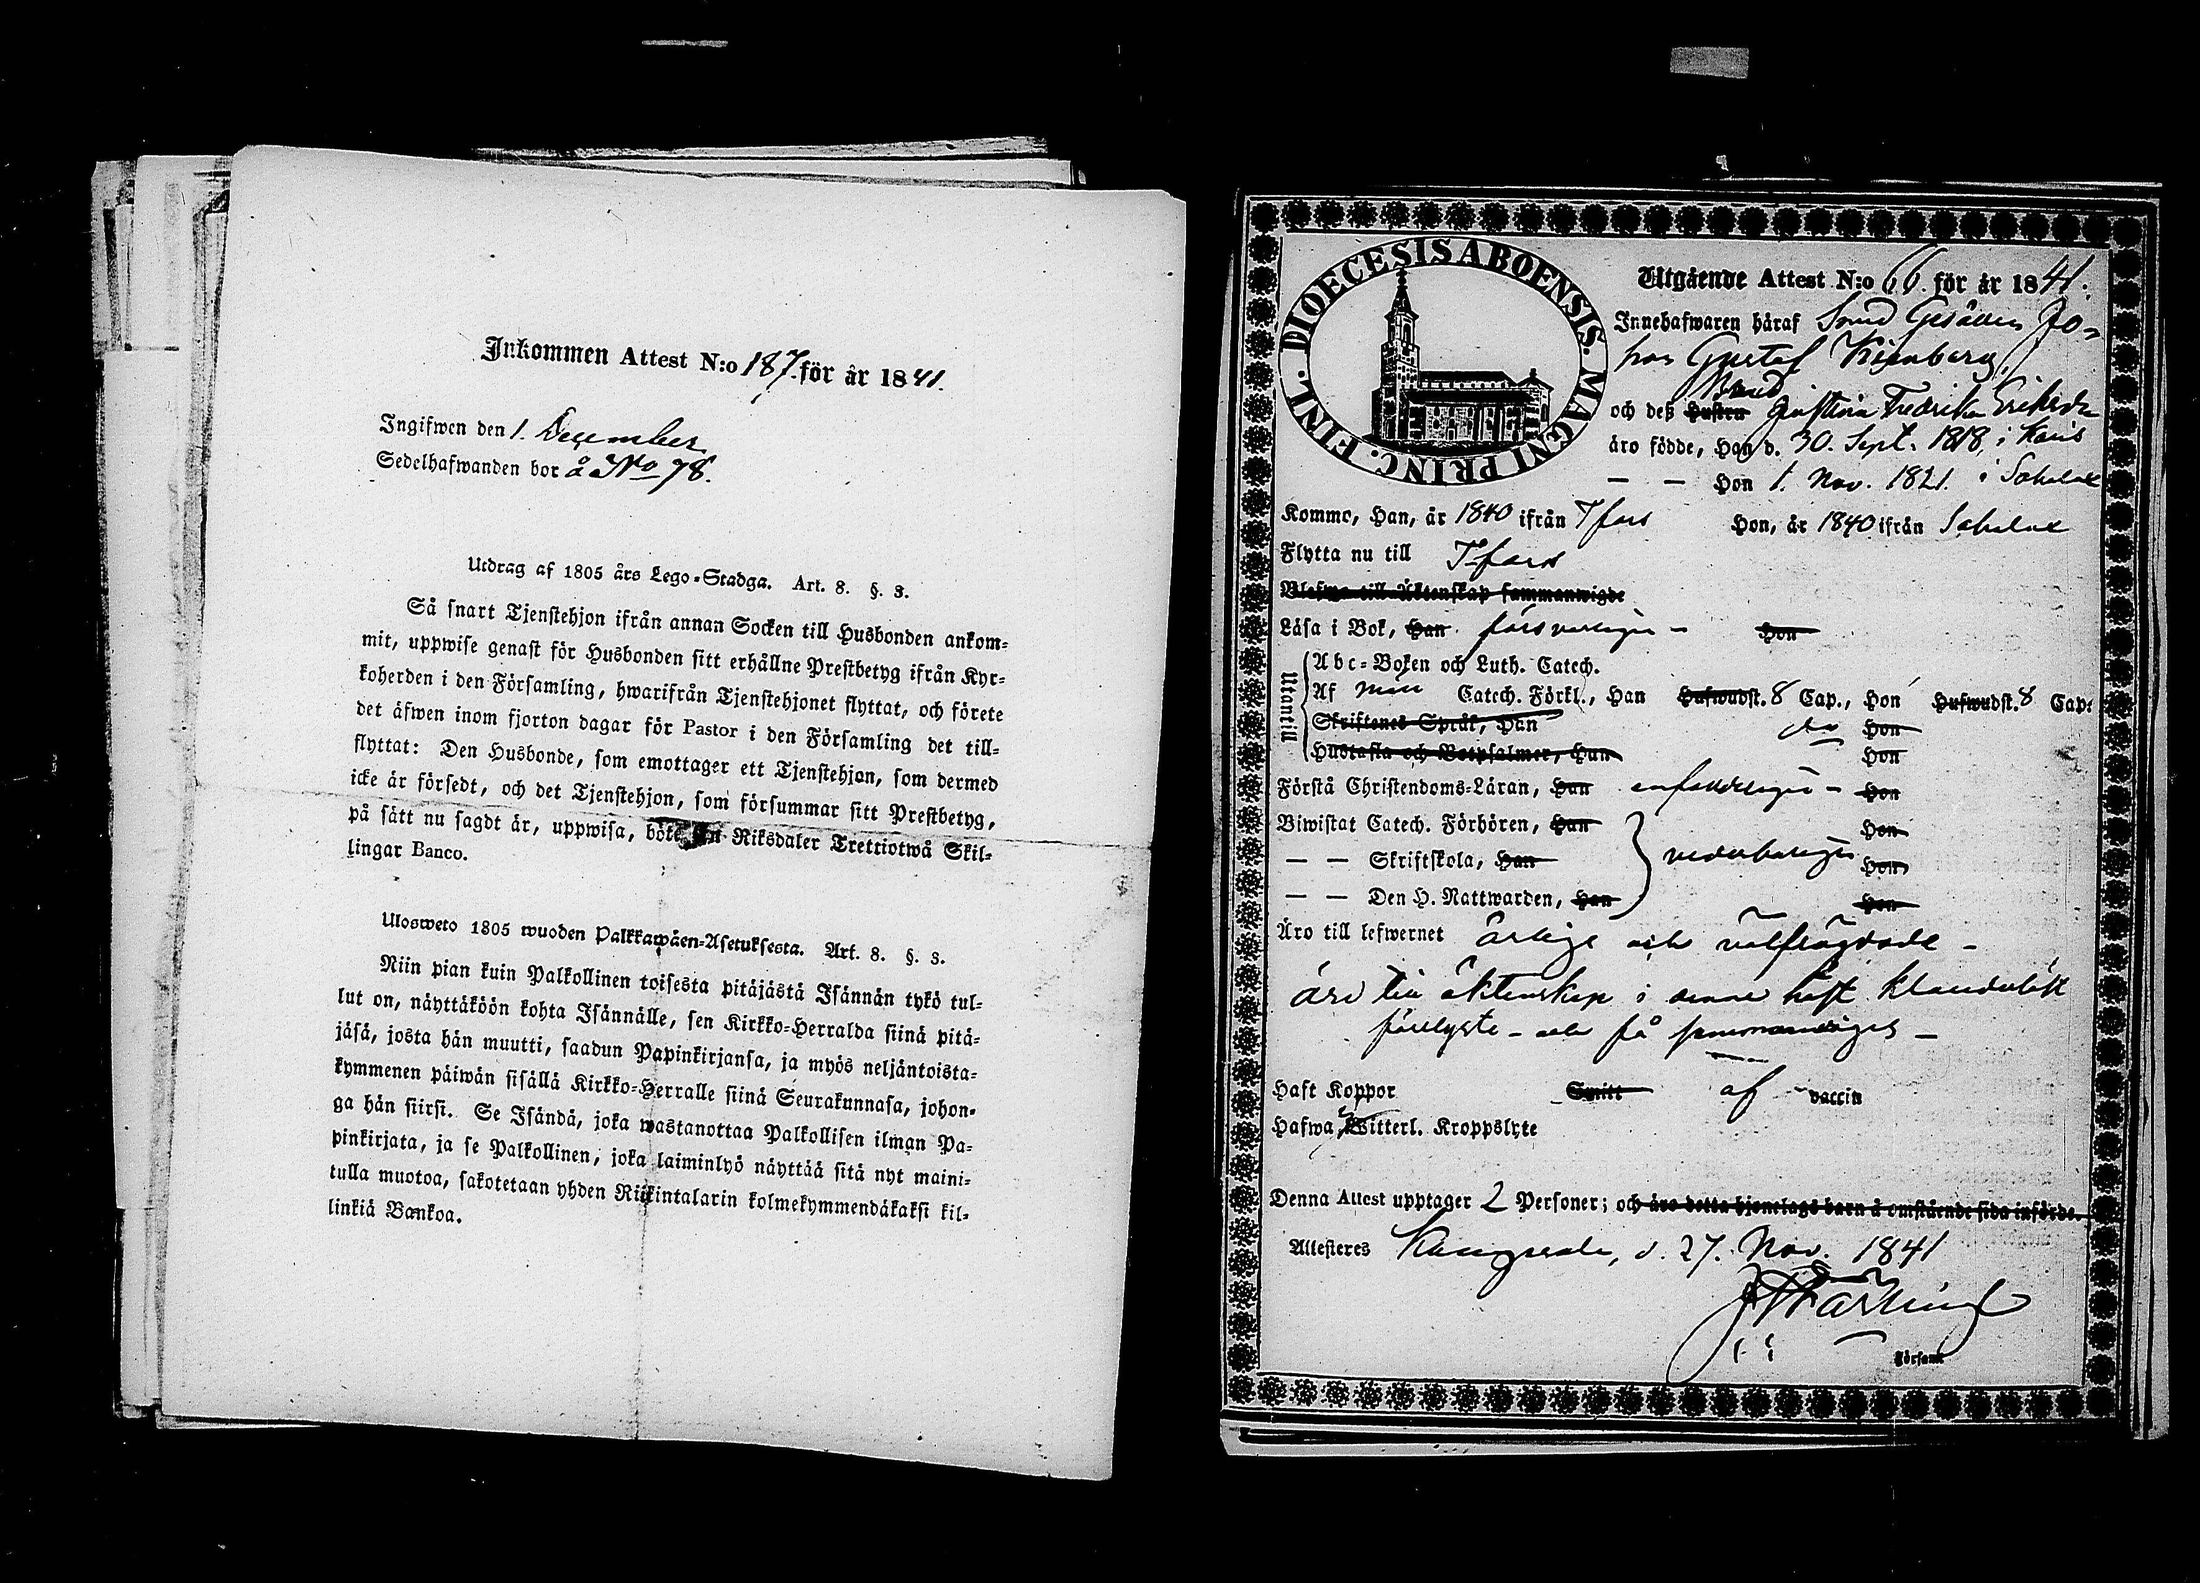 Inkommen Attest N:o 187. för år 1841.
Ingifwen den 1. December
Sedelhafwanden bor å No 78.
Utdrag af 1805 års Lego-Stadga. Art. 8. §. 3.
Så snart Tjenstehjon ifrån annan Socken till Husbonden ankom-
mit, uppwise genast för Husbonden sitt erhållne Prestbetyg ifrån Kyr-
koherden i den Församling, hwarifrån Tjenstehjonet flyttat, och förete
det äfwen inom fjorton dagar för Pastor i den Församling det till-
flyttat: Den Husbonde, som emottager ett Tjenstehjon, som dermed
icke är försedt, och det Tjenstehjon, som försummar sitt Prestbetyg,
på sätt nu sagdt är, uppwisa, böte en Riksdaler Trettiotwå Skil-
lingar Banco.
Ulosweto 1805 wuoden Palkkawäen-Asetuksesta. Art. 8. §. 3.
Niin pian kuin Palkollinen toisesta pitäjästä Isännän tykö tul-
lut on, näyttäköön kohta Isännälle, sen Kirkko-Herralda siinä pitä-
jäsä, josta hän muutti, saadun Papinkirjansa, ja myös neljäntoista-
kymmenen päiwän sisällä Kirkko-Herralle siinä Seurakunnasa, johon-
ga hän siirsi. Se Isändä, joka wastanottaa Palkollisen ilman Pa-
pinkirjata, ja se Palkollinen, joka laiminlyö näyttää sitä nyt maini-
tulla muotoa, sakotetaan yhden Riikintalarin kolmekymmendäkaksi kil-
linkiä Bankoa.
DIOECESIS ABOENSIS. MAGNI PRINC. FINL.
Utgående Attest N:o 66. för år 1841.
Innehafwaren häraf Smed Gesällen Jo-
han Gustaf
och deß Hustru Brud Fredrika
äro födde, Han d. 30. Sept. 1818, i Karis
— — Hon 1. Nov. 1821. i Sahalax
Kommo, Han, år 1840 ifrån T fors Hon, år 1840 ifrån Sahalax
Flytta nu till T-fors
Blefwo till Äktenskap sammanwigde
Läsa i Bok, Han försvarligen — Hon
Utantill
Abc-Boken och Luth. Catech.
Af Catech. Förkl., Han Hufwudst. 8 Cap., Hon Hufwudst. 8 Cap:
Skriftenes Språk, Han Hon
Hustafla och Botpsalmer, Han Hon
Förstå Christendoms-Läran, Han enfaldeligen — Hon
Biwistat Catech. Förhören, Han Hon
— — Skriftskola, Han vederbörligen Hon
— — Den H. Nattwarden, Han Hon
Äro till lefwernet ärlige och välfrägdade —
äro till äktenskap i denne höst klanderlöst
förelyste — och få sammanvigas —
Haft Koppor Smitt af vaccin
Hafwa Witterl. Kroppslyte
Denna Attest upptager 2 Personer; och äro detta hjonelags barn å omstående sida införde.
Attesteres Kangasala, d. 27. Nov. 1841
Församl